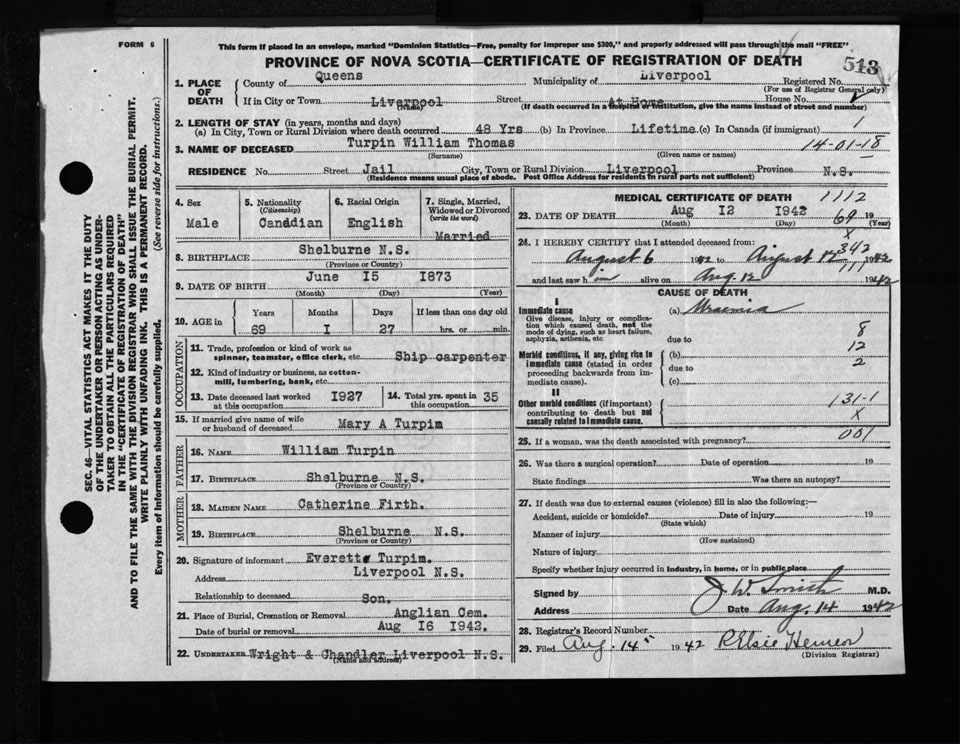 FORM 6
This form if placed in an envelope, marked "Dominion Statistics—Free, penalty for improper use $300," and properly addressed will pass through the mail "FREE"
PROVINCE OF NOVA SCOTIA—CERTIFICATE OF REGISTRATION OF DEATH
513
1. PLACE OF DEATH
County of Queens Municipality of Liverpool Registered No.
(For use of Registrar General only)
If in City or Town Liverpool Street At Home House No.
(Name) (If death occurred in a hospital or institution, give the name instead of street and number)
2. LENGTH OF STAY (in years, months and days)
(a) In City, Town or Rural Division where death occurred 48 Yrs (b) In Province Lifetime (c) In Canada (if immigrant) 1
3. NAME OF DECEASED Turpin William Thomas 14-01-18
(Surname) (Given name or names)
RESIDENCE No. Street Jail City, Town or Rural Division Liverpool Province N.S.
(Residence means usual place of abode. Post Office Address for residents in rural parts not sufficient)
4. Sex
Male
5. Nationality
(Citizenship)
Canadian
6. Racial Origin
English
7. Single, Married, Widowed or Divorced
(write the word)
Married
8. BIRTHPLACE Shelburne N.S.
(Province or Country)
9. DATE OF BIRTH June I5 I873
(Month) (Day) (Year)
10. AGE in
Years Months Days If less than one day old
69 I 27 hrs. or min.
OCCUPATION
11. Trade, profession or kind of work as spinner, teamster, office clerk, etc. Ship carpenter
12. Kind of industry or business, as cotton-mill, lumbering, bank, etc.
13. Date deceased last worked at this occupation I937
14. Total yrs. spent in this occupation 35
15. If married give name of wife or husband of deceased Mary A Turpin
FATHER
16. NAME William Turpin
17. BIRTHPLACE Shelburne N.S.
(Province or Country)
MOTHER
18. MAIDEN NAME Catherine Firth.
19. BIRTHPLACE Shelburne N.S.
(Province or Country)
20. Signature of informant Everett Turpin.
Address Liverpool N.S.
Relationship to deceased Son.
21. Place of Burial, Cremation or Removal Anglian Cem.
Date of burial or removal Aug I6 I942.
22. UNDERTAKER Wright & Chandler Liverpool N.S.
(Name and address)
MEDICAL CERTIFICATE OF DEATH 1112
23. DATE OF DEATH Aug I2 I942 69 19
(Month) (Day) X
24. I HEREBY CERTIFY that I attended deceased from: 342
August 6 1942 to August 12 1942
111
and last saw him alive on Aug. 12 1942
CAUSE OF DEATH
I
Immediate cause
Give disease, injury or complication which caused death, not the mode of dying, such as heart failure, asphyxia, asthenia, etc
(a) Uraemia
due to 8
12
Morbid conditions, if any, giving rise to immediate cause (stated in order proceeding backwards from immediate cause).
(b) 2
due to
(c)
II
Other morbid conditions (if important) contributing to death but not causally related to immediate cause.
131-1
X
25. If a woman, was the death associated with pregnancy? 001
26. Was there a surgical operation? Date of operation 19
State findings Was there an autopsy?
27. If death was due to external causes (violence) fill in also the following:—
Accident, suicide or homicide? Date of injury 19
(State which)
Manner of injury
(How sustained)
Nature of injury
Specify whether injury occurred in industry, in home, or in public place
Signed by J. W. Smith M.D.
Address Date Aug. 14 1942
28. Registrar's Record Number
29. Filed Aug. 14 1942
(Division Registrar)
SEC. 46—VITAL STATISTICS ACT MAKES IT THE DUTY
OF THE UNDERTAKER OR PERSON ACTING AS UNDER-
TAKER TO OBTAIN ALL THE PARTICULARS REQUIRED
IN THE "CERTIFICATE OF REGISTRATION OF DEATH"
AND TO FILE THE SAME WITH THE DIVISION REGISTRAR WHO SHALL ISSUE THE BURIAL PERMIT.
WRITE PLAINLY WITH UNFADING INK. THIS IS A PERMANENT RECORD.
Every item of information should be carefully supplied. (See reverse side for instructions.)